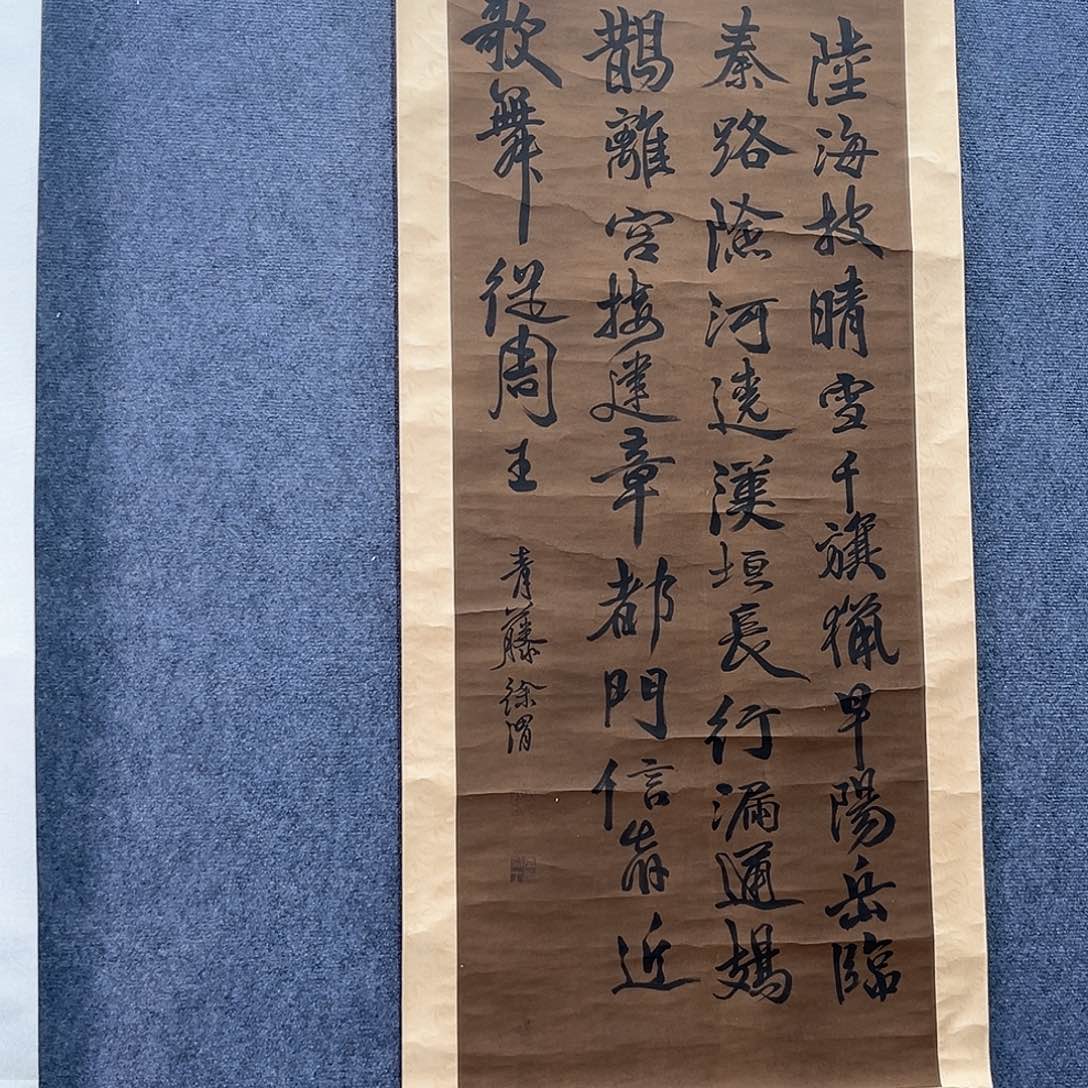 陸海披晴雪千旗獵早陽岳臨
秦路險河遶漢垣長行漏通
鵲離宮接建章都門信近
歌舞從周王
青藤徐渭